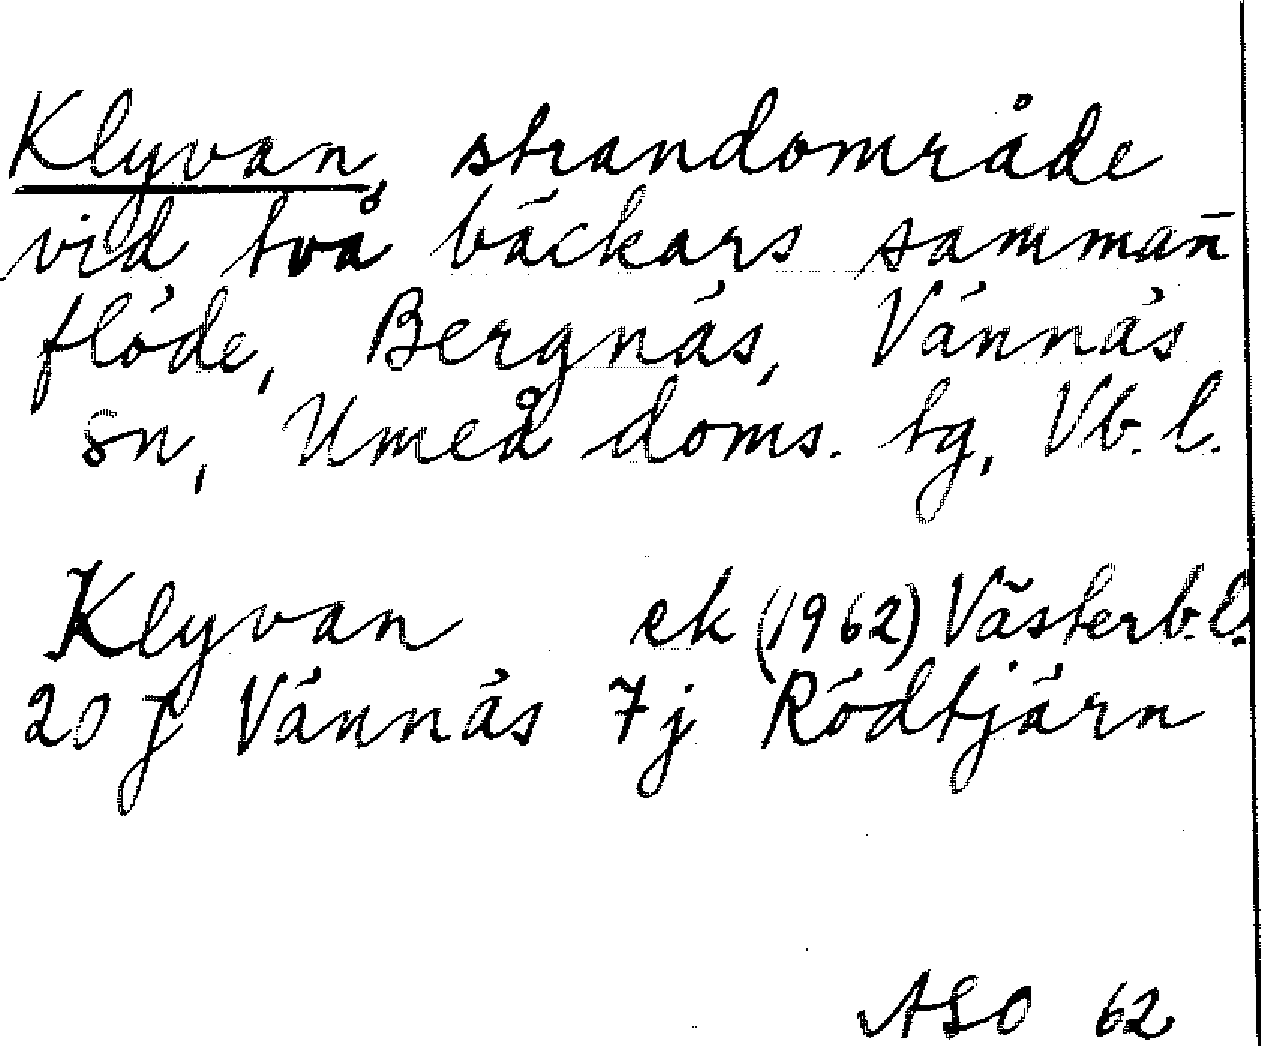 Klyvan, strandområde
vid två bäckars samman̄
flöde, Bergnäs, Vännäs
sn, Umeå doms. tg, Vb. l.
Klyvan ek (1962) Västerb.l.
20 J Vännäs 7j Rödtjärn
ASO 62